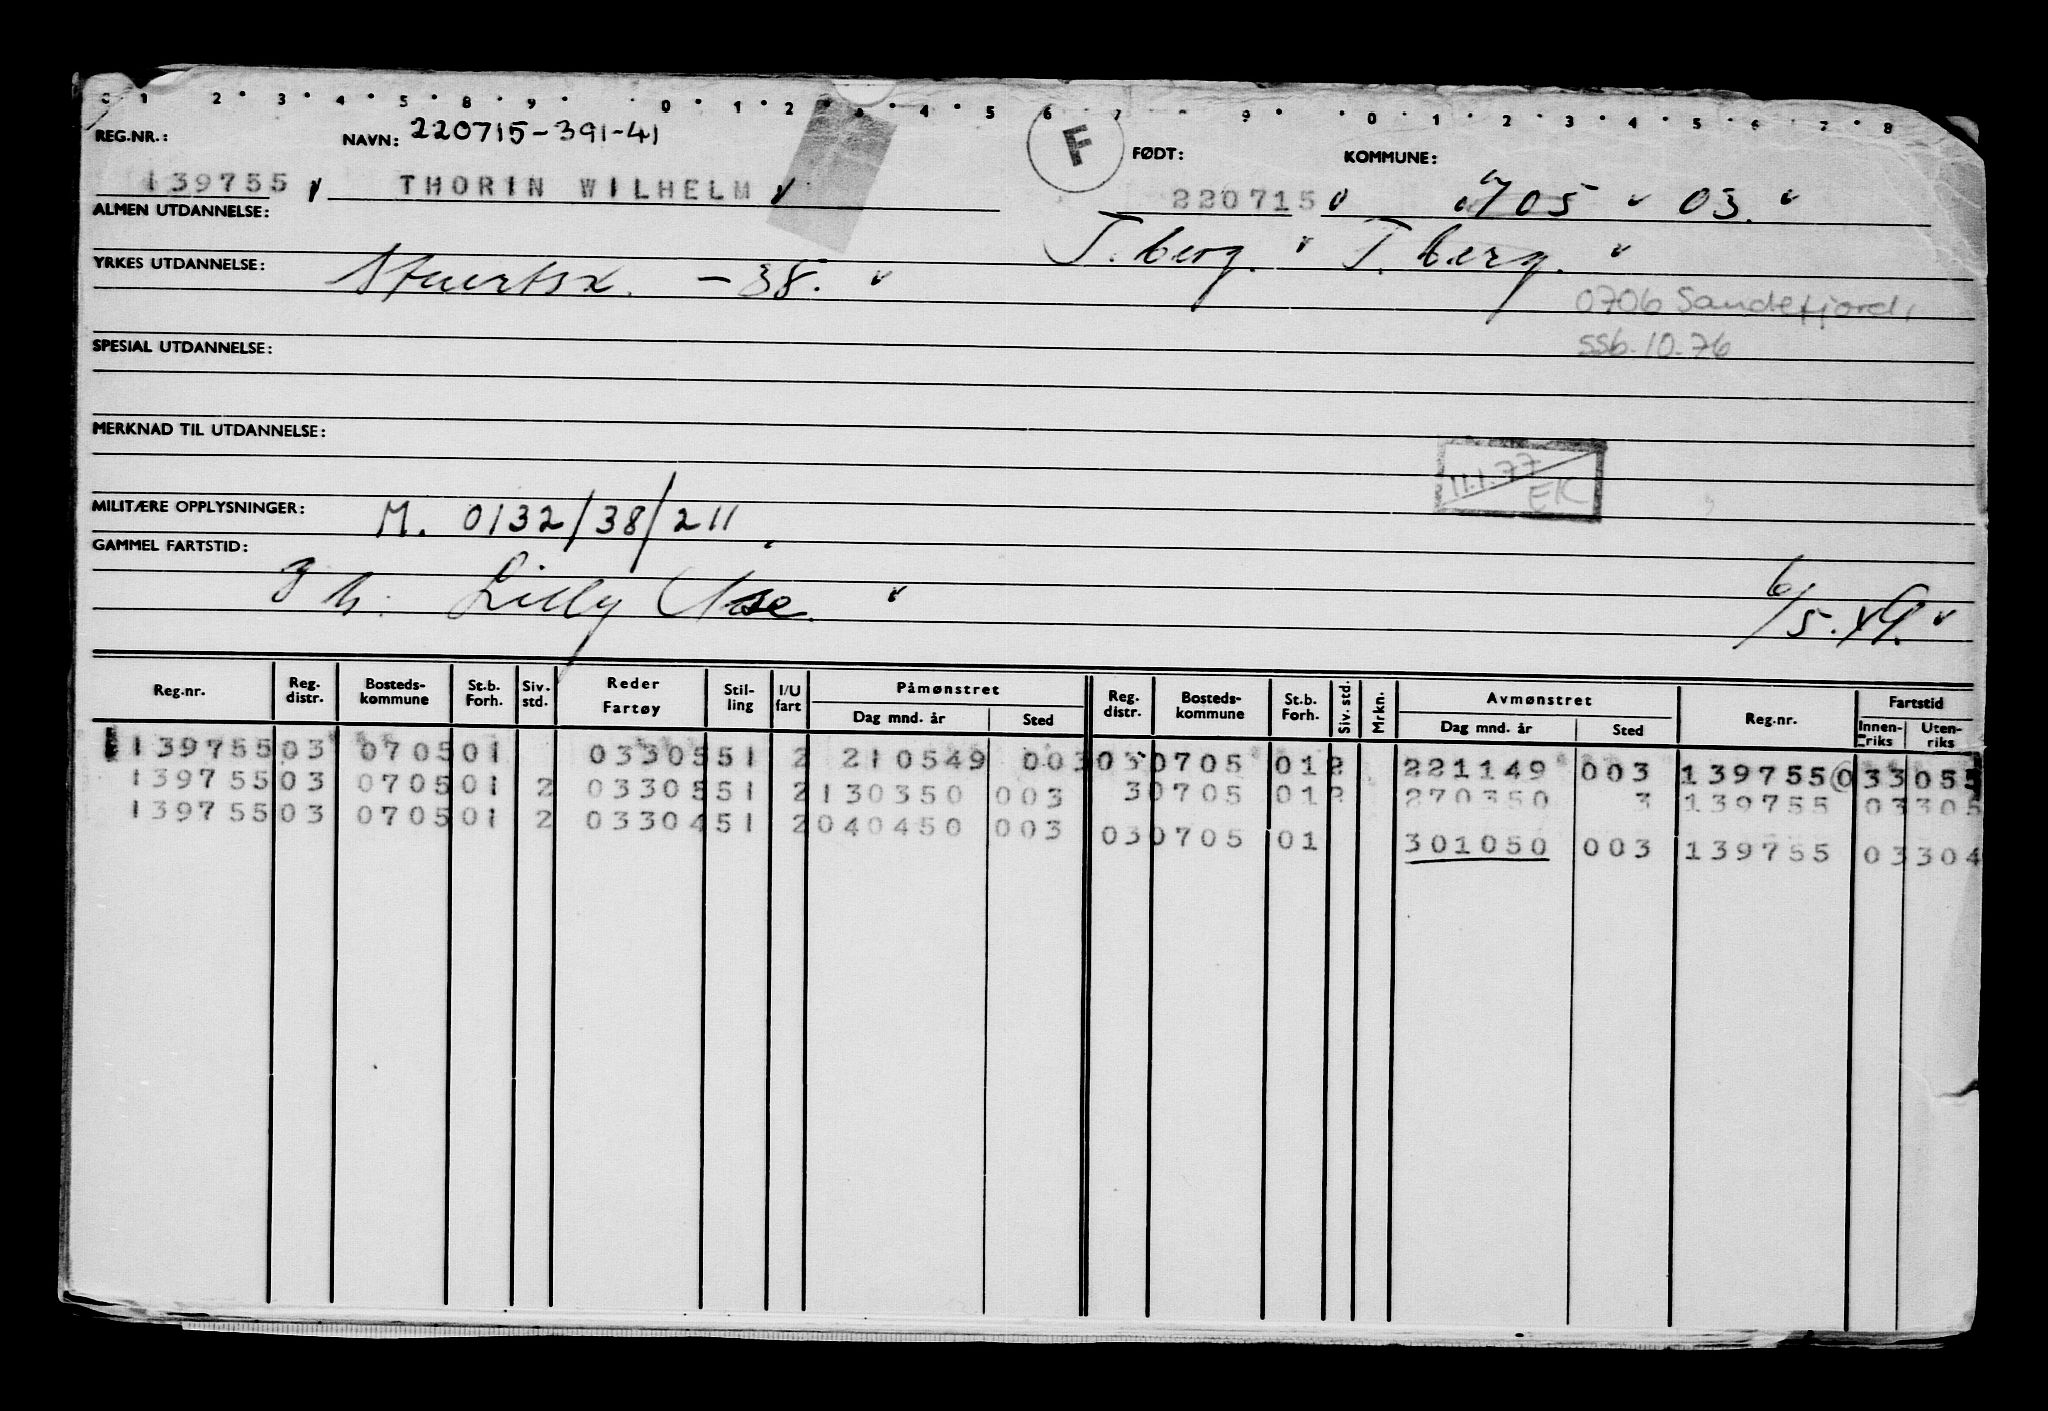 0 1 2 • 3 • 4 • 5 • 8 • 9 • • 0 • 1 • 2 • 4 • 5 6 7 9 • • 0 • 1 • 2 • 3 • 4 • 5 • 6 • 7 • 8
REG.NR.: NAVN: 220715-391-41 F FØDT: KOMMUNE:
139755 THORIN WILHELM 220715 0705 03.
ALMEN UTDANNELSE: T.berg. T.berg.
YRKES UTDANNELSE: Stuertsk. - 38.
0706 Sandefjord,
SPESIAL UTDANNELSE: SSb.10.76
MERKNAD TIL UTDANNELSE:
11.1.77 EK
MILITÆRE OPPLYSNINGER: M. 0132/38/211
GAMMEL FARTSTID:
Lilly 6/5.49.
Reg.nr. Reg. distr. Bosteds-kommune St.b. Forh. Siv. std. Reder Fartøy Stil-ling I/U fart Påmønstret Reg. distr. Bosteds-kommune St.b. Forh. Siv. std. Mrkn. Avmønstret Reg.nr. Fartstid
Dag mnd. år Sted Dag mnd. år Sted Innen-riks Uten-riks
139755 03 0705 01 03305 51 2 210549 003 03 0705 01 2 221149 003 139755 033055
139755 03 0705 01 2 03305 51 2 130350 003 3 0705 01 2 270350 3 139755 03305
139755 03 0705 01 2 03304 51 2 040450 003 03 0705 01 301050 003 139755 03304